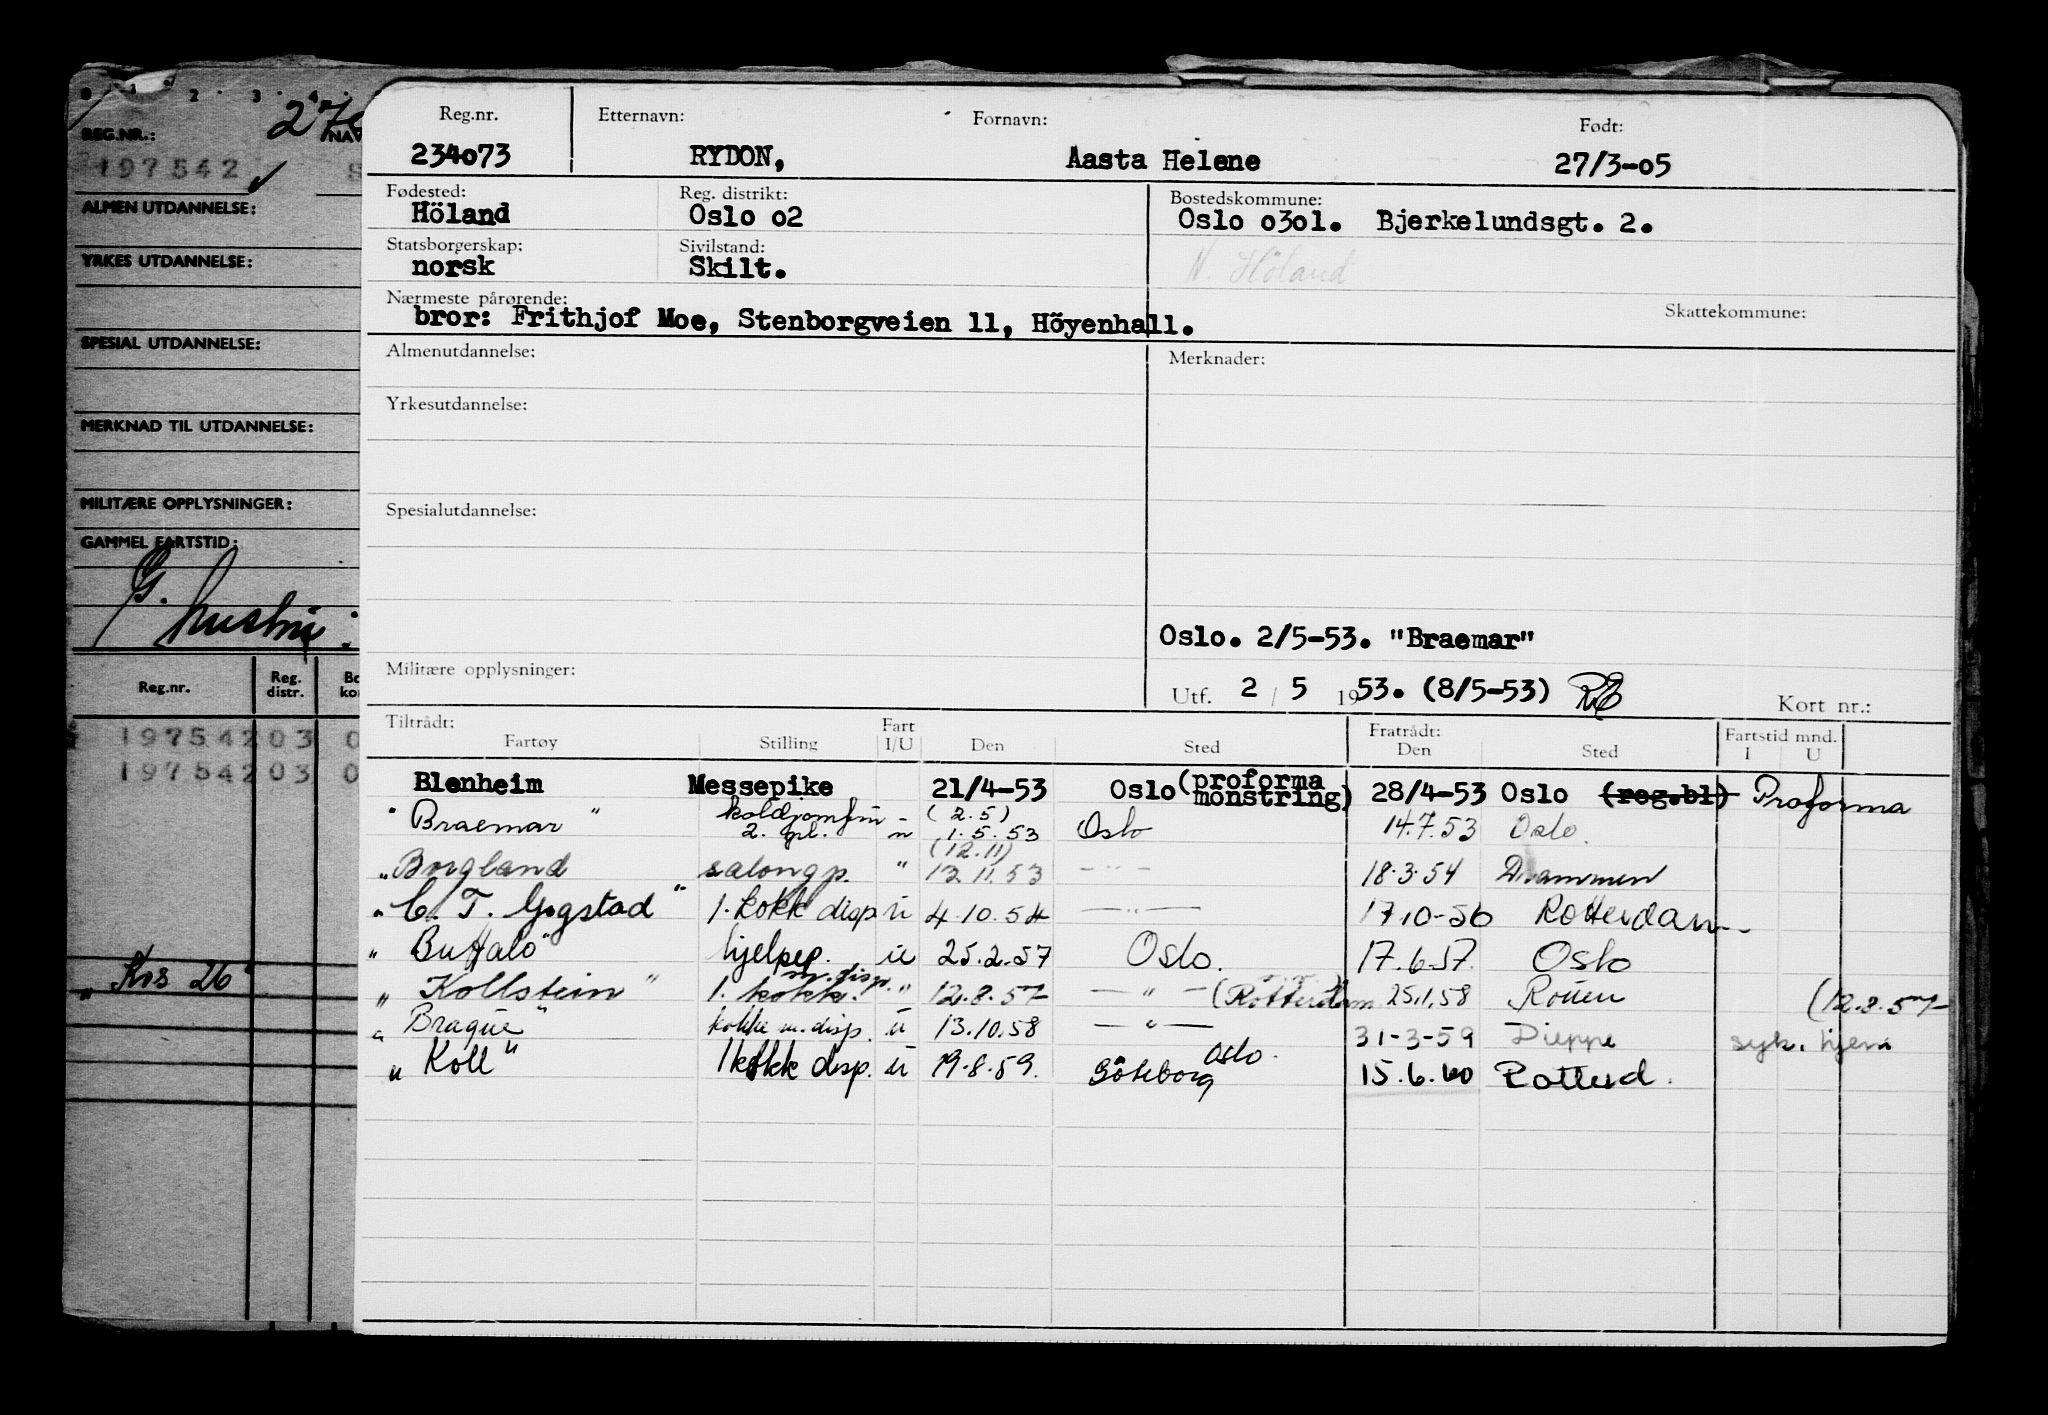 0 1 2 3 4
REG.NR.: NAV
197542 S
ALMEN UTDANNELSE:
YRKES UTDANNELSE:
SPESIAL UTDANNELSE:
MERKNAD TIL UTDANNELSE:
MILITÆRE OPPLYSNINGER:
GAMMEL FARTSTID:
G.
Reg.nr. Reg. distr. Bo kor
197542 03 0
197542 03 0
„ Kos 26"
Reg.nr. Etternavn: Fornavn: Født:
234o73 RYDON, Aasta Helene 27/3-o5
Fødested: Reg. distrikt: Bostedskommune:
Höland Oslo o2 Oslo o3o1. Bjerkelundsgt. 2.
Statsborgerskap: Sivilstand:
norsk Skilt. N. Höland
Nærmeste pårørende: Skattekommune:
bror: Frithjof Moe, Stenborgveien 11, Höyenhall.
Almenutdannelse: Merknader:
Yrkesutdannelse:
Spesialutdannelse:
Oslo. 2/5-53. "Braemar"
Militære opplysninger:
Utf. 2 / 5 1953. (8/5-53) Kort nr.:
Tiltrådt: Fart Fratrådt: Fartstid mnd.
Fartøy Stilling I/U Den Sted Den Sted I U
Blenheim Messepike 21/4-53 Oslo (proforma mönstring) 28/4-53 Oslo (reg.bl) Proforma
" Braemar " koldjomfru 2. gl. - " (2.5) 1.5.53 Oslo 14.7.53 Oslo.
„ Borgland salongp. " (12.11) 12.11.53 — " — 18.3.54 Drammen
" C. T. Gogstad " 1. kokk disp. ü 4.10.54 — " — 17.10-56 Rotterdam
" Buffalo" hjelpep. u 25.2.57 Oslo. 17.6.57. Oslo
" Kollstein " 1. kokk. m. disp. " 12.8.57 — " — (Rotterdam 25.1.58 Rouen (12.8.57
" Braque " kokke m. disp. ü 13.10.58 — " — 31-3-59 Dieppe syk. hjem
" Koll " 1 kokk disp. ü 19.8.59. Göteborg Oslo. 15.6.60 Rotterd.